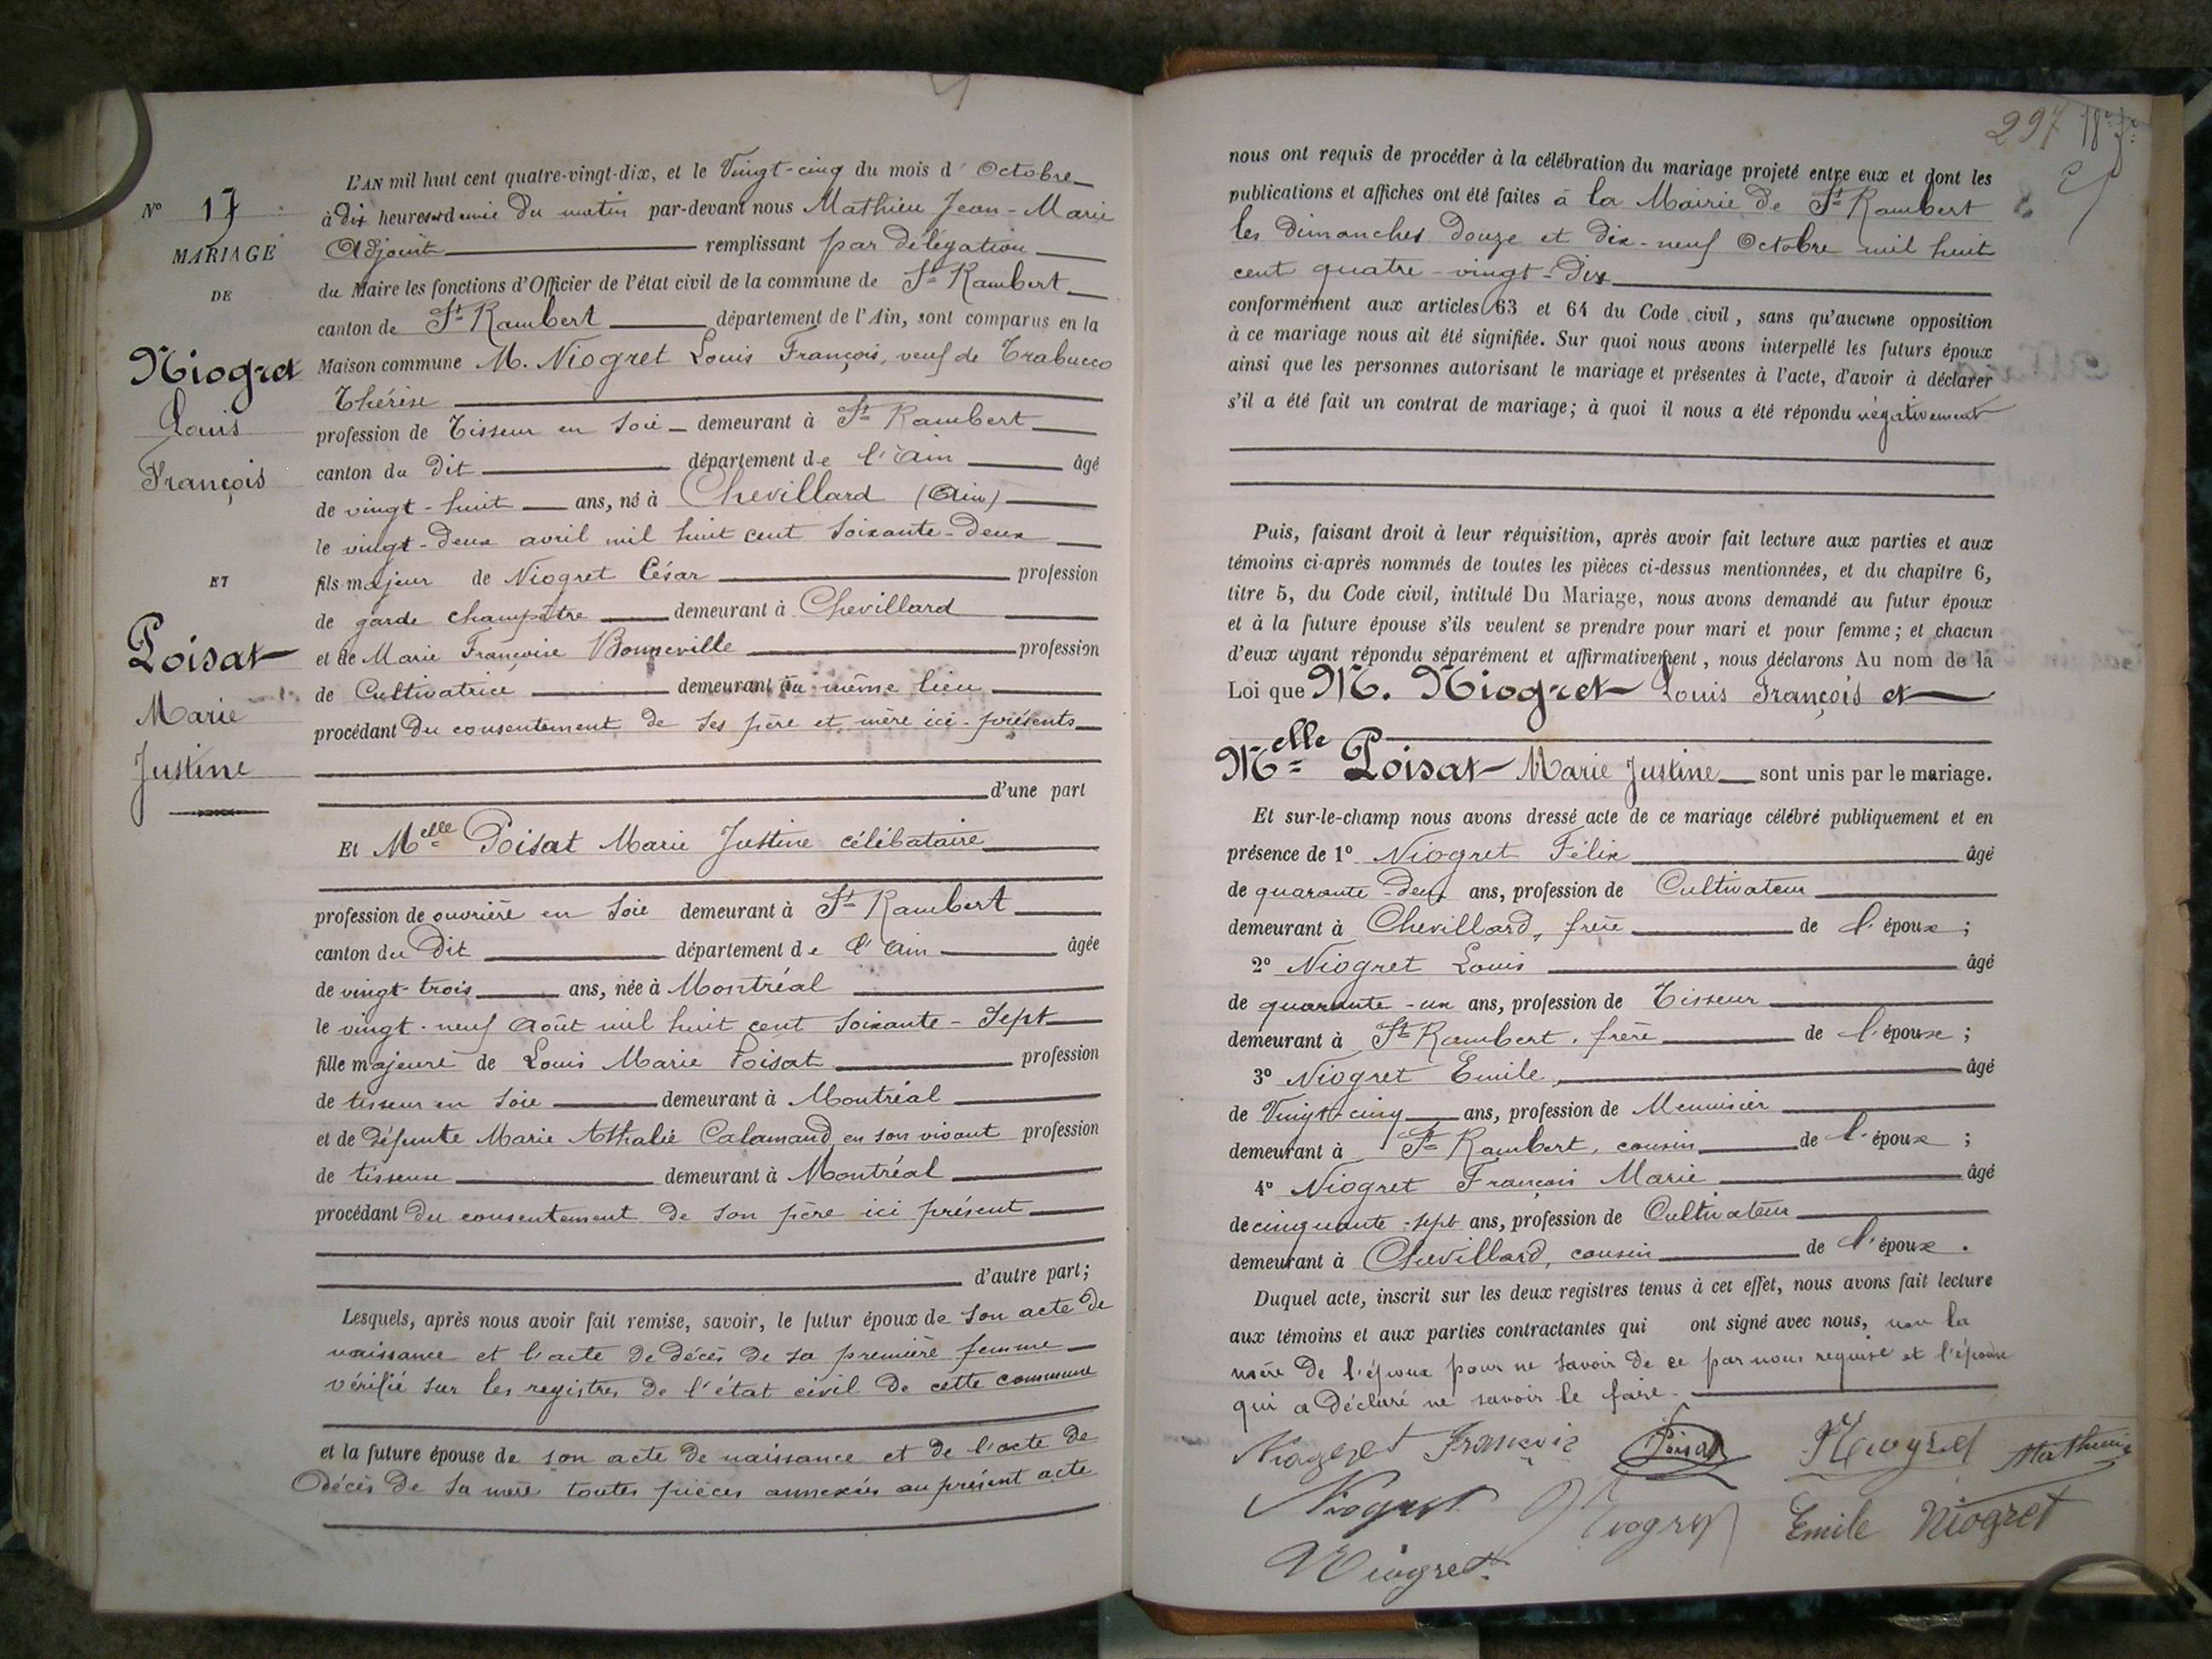 N° 17
MARIAGE
DE
Niogret
Louis
François
ET
Poisat
Marie
Justine
L'AN mil huit cent quatre-vingt-dix, et le Vingt-cinq du mois d' Octobre
à dix heures et demie du matin par-devant nous Mathieu Jean-Marie
Adjoint remplissant par délégation
du Maire les fonctions d'Officier de l'état civil de la commune de St Rambert
canton de St Rambert département de l'Ain, sont comparus en la
Maison commune M. Niogret Louis François, veuf de Trabucco
Thérèse
profession de Tisseur en soie demeurant à St Rambert
canton du dit département de l'Ain âgé
de vingt-huit ans, né à Chevillard (Ain)
le vingt-deux avril mil huit cent soixante-deux
fils majeur de Niogret César profession
de garde champêtre demeurant à Chevillard
et de Marie Françoise Bonneville profession
de Cultivatrice demeurant au même lieu
procédant du consentement de ses père et mère ici-présents
d'une part
Et Melle Poisat Marie Justine célibataire
profession de ouvrière en soie demeurant à St Rambert
canton du dit département de l'Ain âgée
de vingt-trois ans, née à Montréal
le vingt-neuf Août mil huit cent soixante-sept
fille majeure de Louis Marie Poisat profession
de tisseur en soie demeurant à Montréal
et de défunte Marie Athalie Calamand en son vivant profession
de tisseuse demeurant à Montréal
procédant du consentement de son père ici présent
d'autre part;
Lesquels, après nous avoir fait remise, savoir, le futur époux de son acte de
naissance et l'acte de décès de sa première femme
vérifié sur les registres de l'état civil de cette commune
et la future épouse de son acte de naissance et de l'acte de
décès de sa mère toutes pièces annexées au présent acte
297
nous ont requis de procéder à la célébration du mariage projeté entre eux et dont les
publications et affiches ont été faites à la Mairie de St Rambert
les dimanches douze et dix-neuf Octobre mil huit
cent quatre-vingt-dix
conformément aux articles 63 et 64 du Code civil, sans qu'aucune opposition
à ce mariage nous ait été signifiée. Sur quoi nous avons interpellé les futurs époux
ainsi que les personnes autorisant le mariage et présentes à l'acte, d'avoir à déclarer
s'il a été fait un contrat de mariage; à quoi il nous a été répondu négativement
Puis, faisant droit à leur réquisition, après avoir fait lecture aux parties et aux
témoins ci-après nommés de toutes les pièces ci-dessus mentionnées, et du chapitre 6,
titre 5, du Code civil, intitulé Du Mariage, nous avons demandé au futur époux
et à la future épouse s'ils veulent se prendre pour mari et pour femme; et chacun
d'eux ayant répondu séparément et affirmativement, nous déclarons Au nom de la
Loi que M. Niogret Louis François et
Melle Poisat Marie Justine sont unis par le mariage.
Et sur-le-champ nous avons dressé acte de ce mariage célébré publiquement et en
présence de 1° Niogret Félix âgé
de quarante-deux ans, profession de Cultivateur
demeurant à Chevillard, frère de l'époux;
2° Niogret Louis âgé
de quarante-un ans, profession de Tisseur
demeurant à St Rambert, frère de l'époux;
3° Niogret Emile, âgé
de Vingt-cinq ans, profession de Menuisier
demeurant à St Rambert, cousin de l'époux;
4° Niogret François Marie âgé
de cinquante-sept ans, profession de Cultivateur
demeurant à Chevillard, cousin de l'époux.
Duquel acte, inscrit sur les deux registres tenus à cet effet, nous avons fait lecture
aux témoins et aux parties contractantes qui ont signé avec nous, non la
mère de l'époux pour ne savoir de ce par nous requise et l'épouse
qui a déclaré ne savoir le faire.
Niogret François Poisat Niogret Mathieu
Niogret Niogret Emile Niogret
Niogret